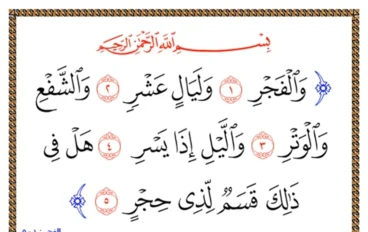 بِسْمِ ٱللَّهِ ٱلرَّحْمَٰنِ ٱلرَّحِيمِ
﴿ وَٱلْفَجْرِ ١ وَلَيَالٍ عَشْرٍ ٢ وَٱلشَّفْعِ
وَٱلْوَتْرِ ٣ وَٱلَّيْلِ إِذَا يَسْرِ ٤ هَلْ فِى
ذَٰلِكَ قَسَمٌ لِّذِى حِجْرٍ ٥ ﴾